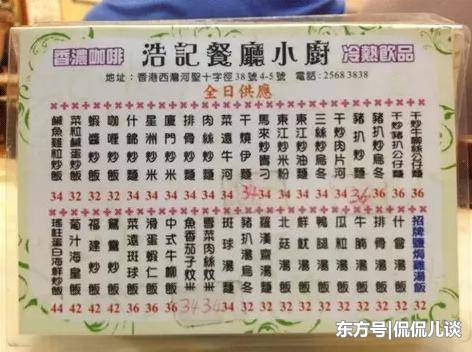 香濃咖啡
浩記餐廳小廚
冷熱飲品
地址：香港西灣河聖十字徑38號4-5號 電話：2568 3838
全日供應
干炒牛柳絲公仔麵 36
干炒豬扒公仔麵 36
豬扒炒烏冬 36
豬扒炒麵 36
干炒肉片河 34
三絲炒烏冬 34
東江炒油麵 32
東江炒米粉 32
馬來炒貴刁 34
干燒伊麵 34
菜遠牛河 34
肉絲炒麵 34
排骨炒麵 34
廈門炒米 34
星洲炒米 34
什錦炒麵 34
咖喱炒飯 32
蝦醬炒飯 32
菜粒鹹蛋炒飯 32
鹹魚雞粒炒飯 34
招牌鹽焗雞湯飯 32
什會湯飯 32
排骨湯飯 32
牛腩湯飯 32
瓜粒湯飯 32
鴨腿湯飯 32
鮮魷湯飯 32
北菇湯飯 32
羅漢齋湯麵 32
豬扒湯烏冬 32
斑球湯麵 34
雪菜肉絲炆米 34
魚香茄子炆米 34
中式牛柳飯 36
滑蛋蝦仁飯 36
菜遠斑球飯 36
鴛鴦炒飯 42
福建炒飯 42
葡汁海皇飯 42
瑤柱蛋白海鮮炒飯 44
东方号|侃侃儿谈